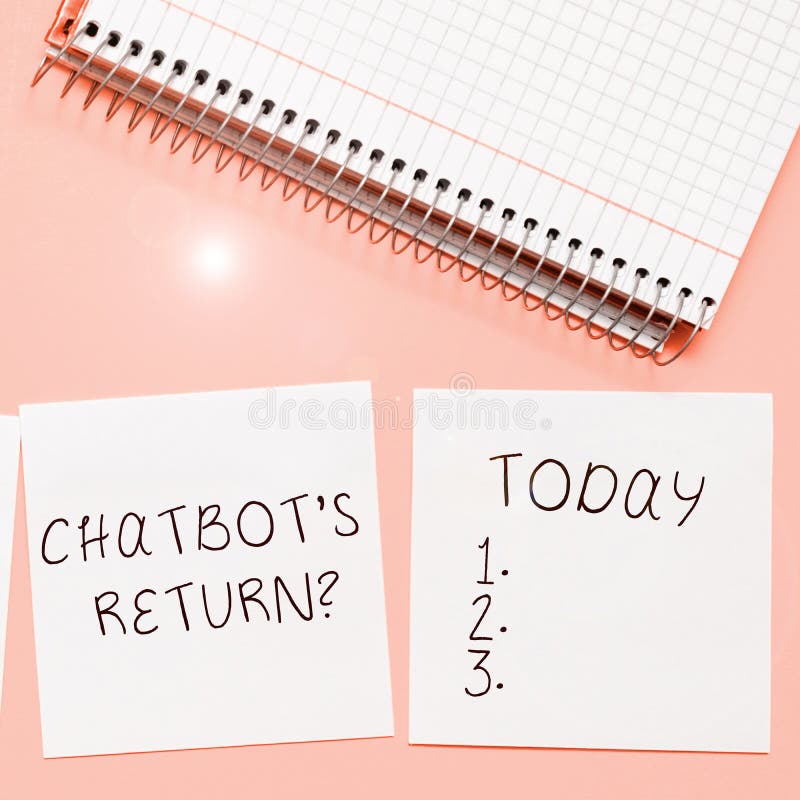 dreamstime
CHATBOT'S
RETURN?
TODAY
1.
2.
3.